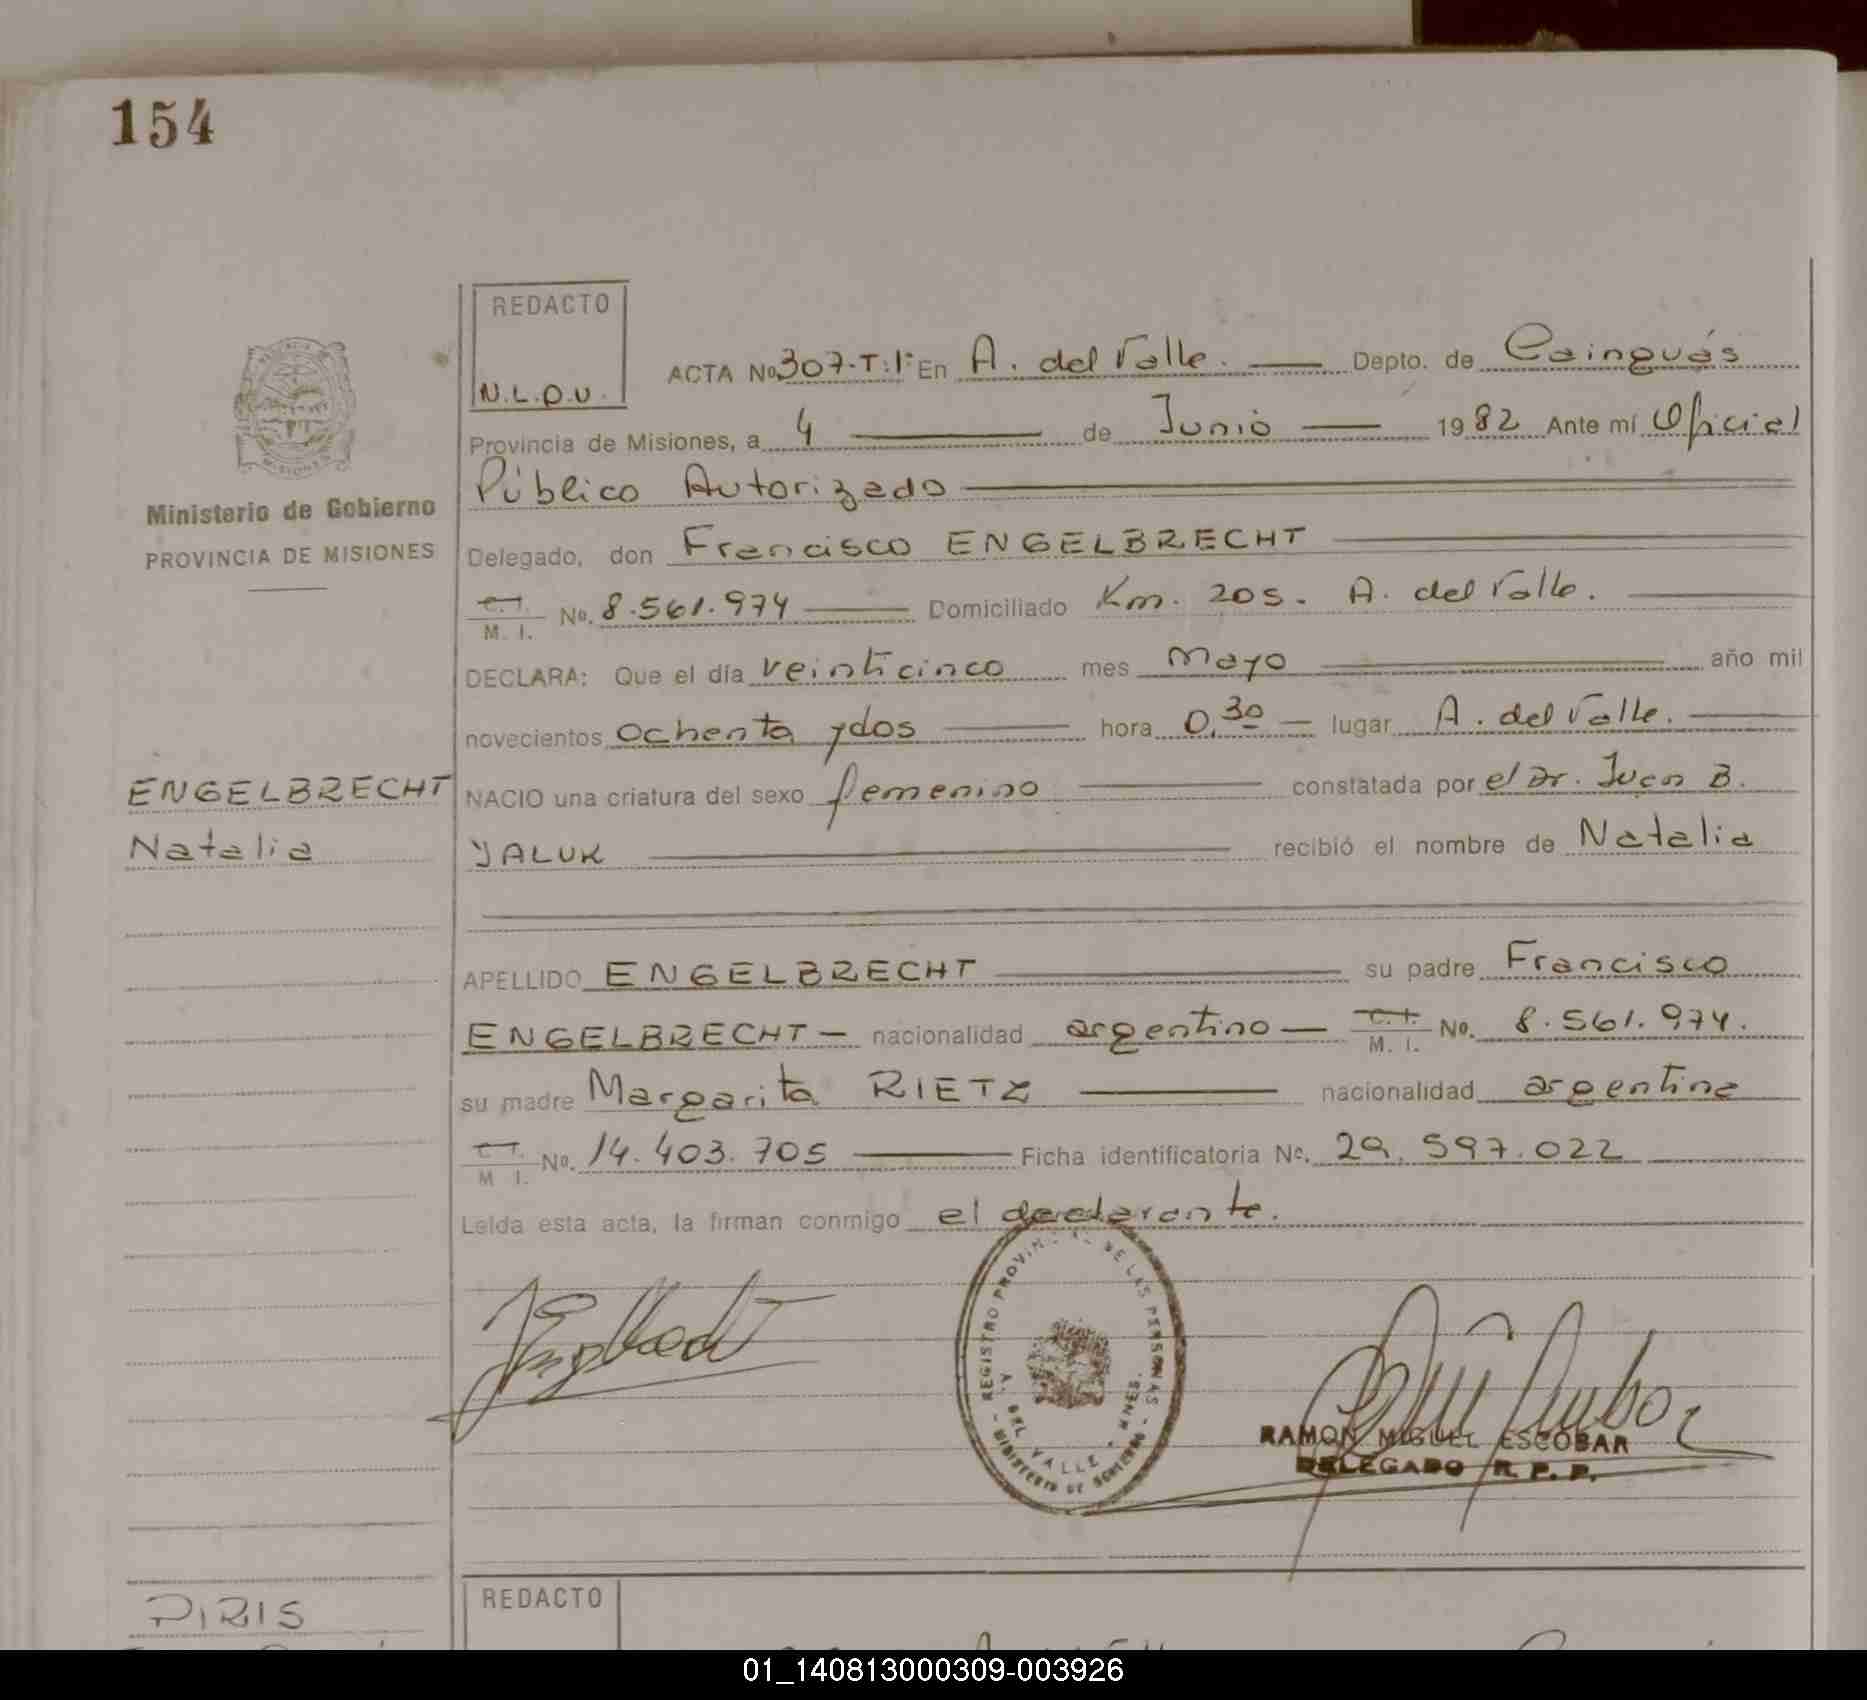 154
REDACTO
N.L.D.U.
ACTA No 307-T:1º En A. del Valle. Depto. de Cainguás
Provincia de Misiones, a 4 de Junio 1982 Ante mí Oficial
Público Autorizado
Ministerio de Gobierno
PROVINCIA DE MISIONES
Delegado, don Francisco ENGELBRECHT
C.I. M. I. No. 8.561.974 Domiciliado Km. 205. A. del Valle.
DECLARA: Que el día veinticinco mes Mayo año mil
novecientos ochenta y dos hora 0,30 lugar A. del Valle.
ENGELBRECHT
Natalia
NACIO una criatura del sexo femenino constatada por el Dr. Juan B.
YALUK recibió el nombre de Natalia
APELLIDO ENGELBRECHT su padre Francisco
ENGELBRECHT nacionalidad argentino C.I. M. I. No. 8.561.974.
su madre Margarita RIETZ nacionalidad argentina
C.I. M I. No. 14.403.705 Ficha identificatoria No. 29.597.022
Leída esta acta, la firman conmigo el declarante.
REGISTRO PROVINCIAL DE LAS PERSONAS
A. DEL VALLE - MNES.
MINISTERIO DE GOBIERNO
RAMON MIGUEL ESCOBAR
DELEGADO R. P. P.
PIRIS
REDACTO
01_140813000309-003926